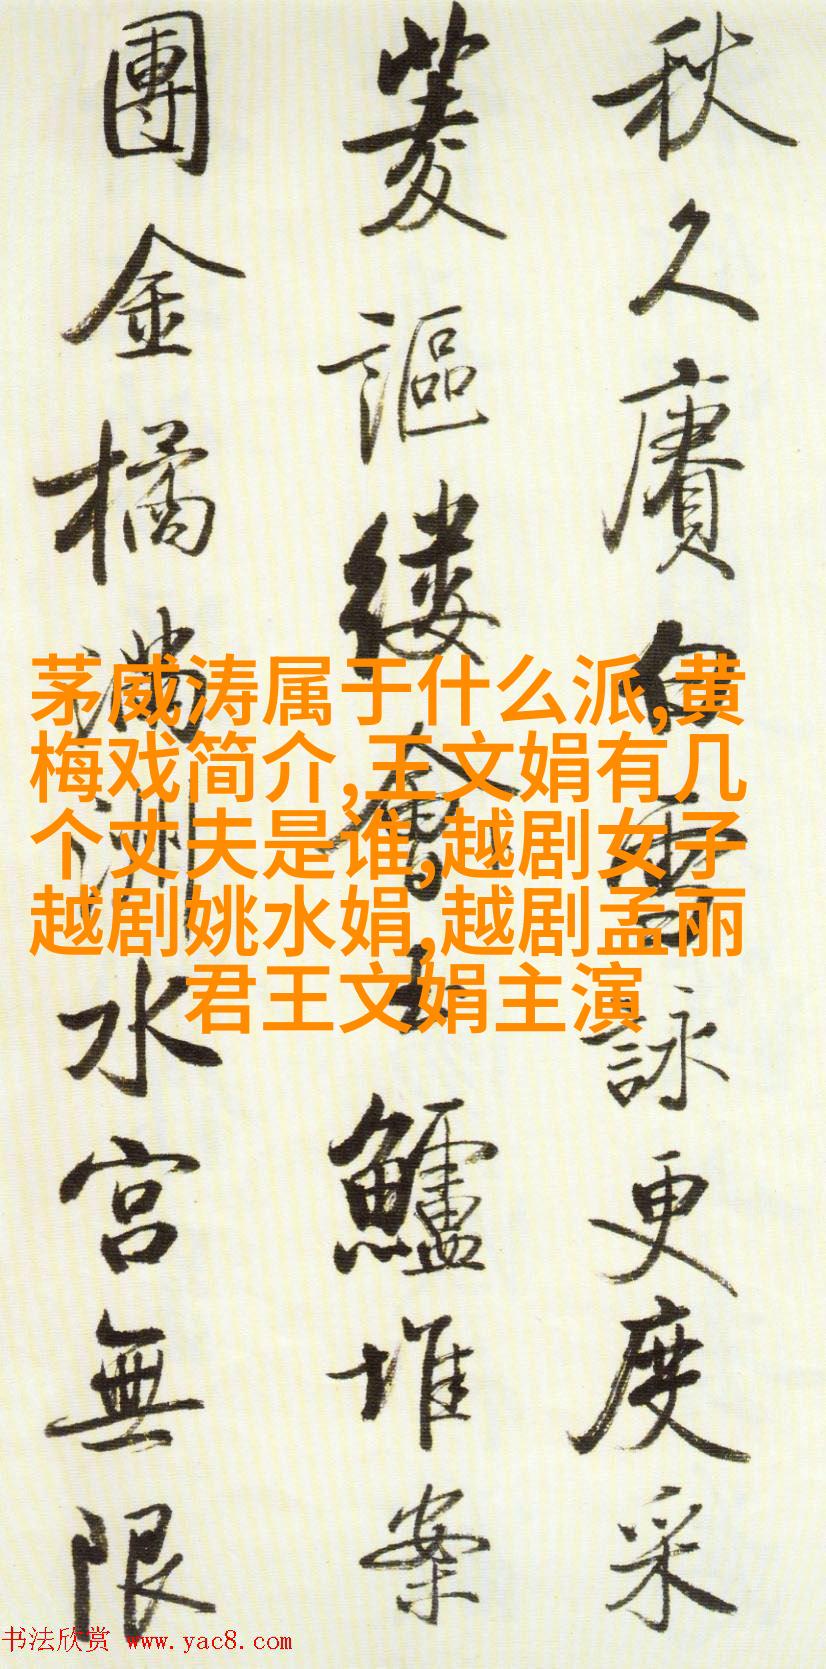 秋久賡白雪詠更度采
菱謳縷會玉鱸堆案
團金橘滿洲水宮無限
茅威涛属于什么派,黄
梅戏简介,王文娟有几
个丈夫是谁,越剧女子
越剧姚水娟,越剧孟丽
君王文娟主演
书法欣赏 www.yac8.com